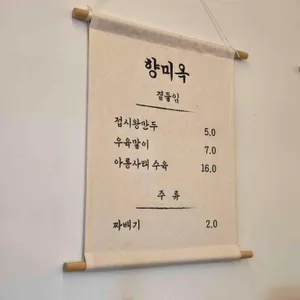 향미옥
곁들임
접시왕만두 5.0
우육말이 7.0
아롱사태 수육 16.0
주 류
짜배기 2.0